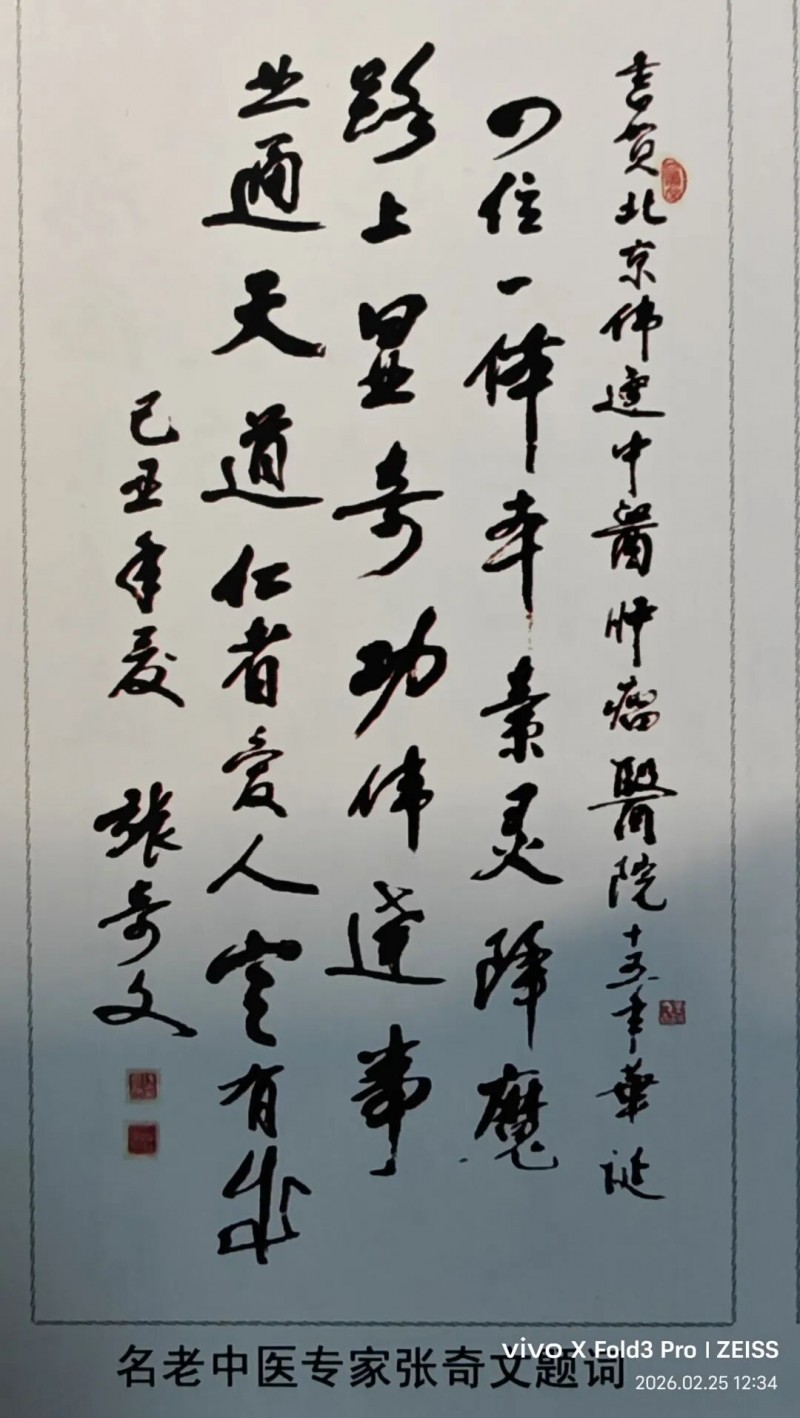 书贺北京伟达中醫肿瘤醫院十五年華诞
四位一体本素灵降魔
路上显奇功伟达事
业通天道仁者爱人定有成
己丑年夏 张奇文
名老中医专家张奇文题词
vivo X Fold3 Pro | ZEISS
2026.02.25 12:34